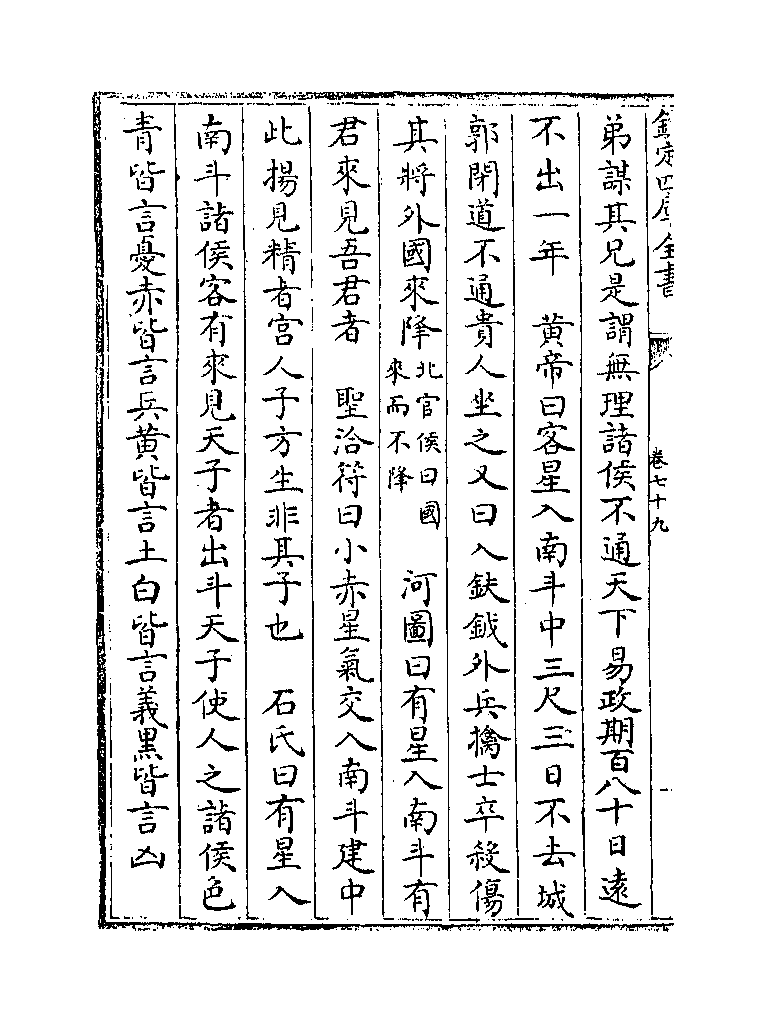 欽定四庫全書
卷七十九
弟謀其兄是謂無理諸侯不通天下易政期百八十日遠
不出一年　黄帝曰客星入南斗中三尺三日不去城
郭閉道不通貴人坐之又曰入鈇鉞外兵擒士卒殺傷
其將外國來降北官侯曰國來而不降　河圖曰有星入南斗有
君來見吾君者　聖洽符曰小赤星氣交入南斗建中
此揚見精者宫人子方生非其子也　石氏曰有星入
南斗諸侯客有來見天子者出斗天子使人之諸侯色
青皆言憂赤皆言兵黄皆言土白皆言義黒皆言凶